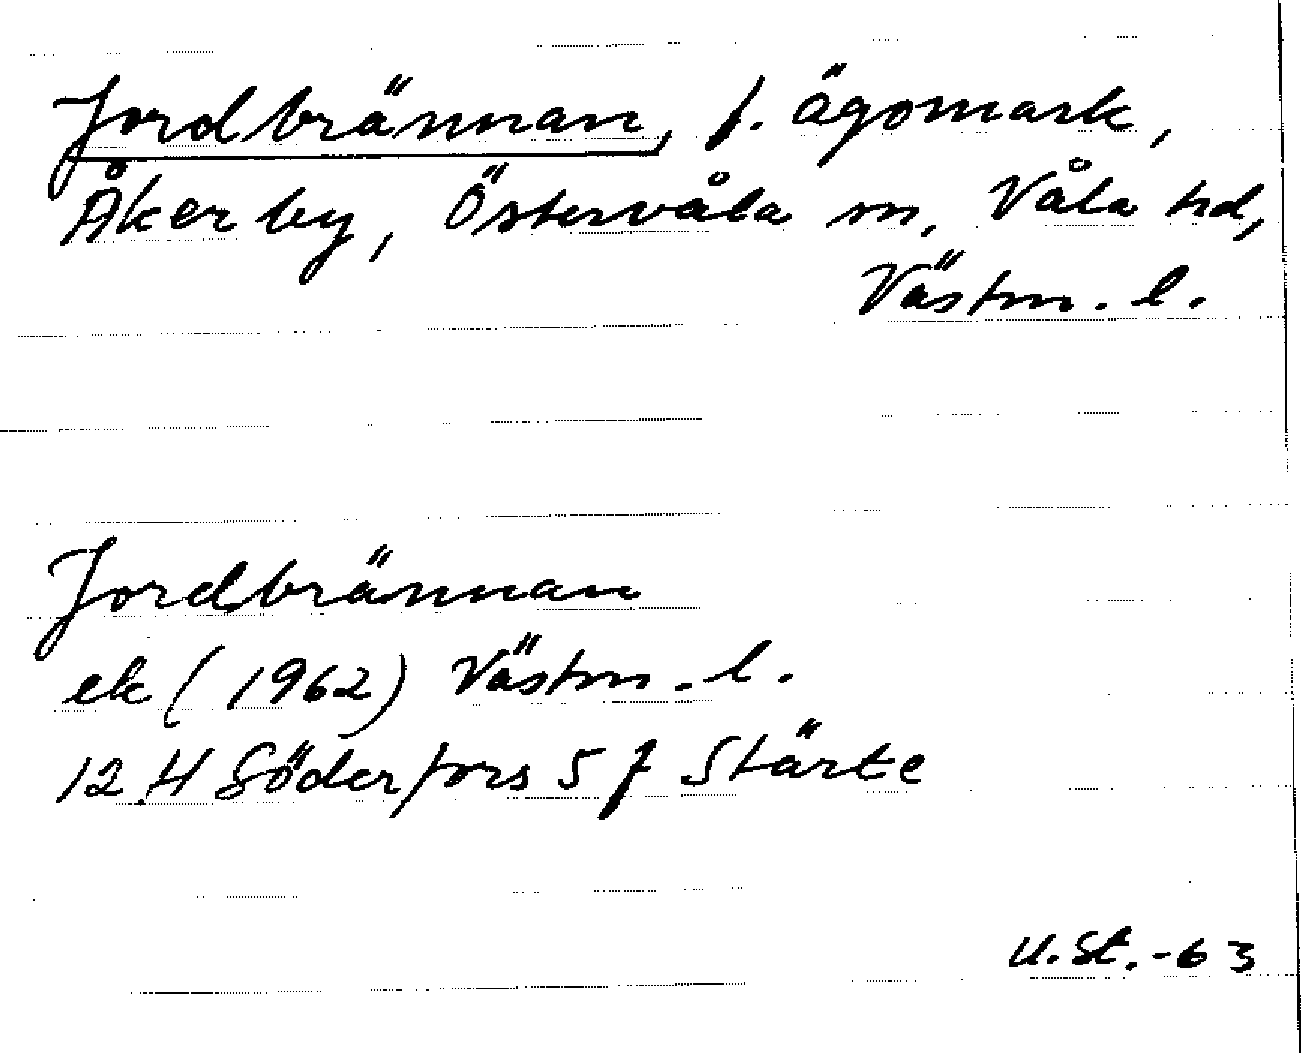 Jordbrännan, f. ägomark,
Åkerby, Östervåla sn, Våla hd,
Västm. l.
Jordbrännan
ek (1962) Västm. l.
12 H Söderfors 5 f Stärte
U. St. -63